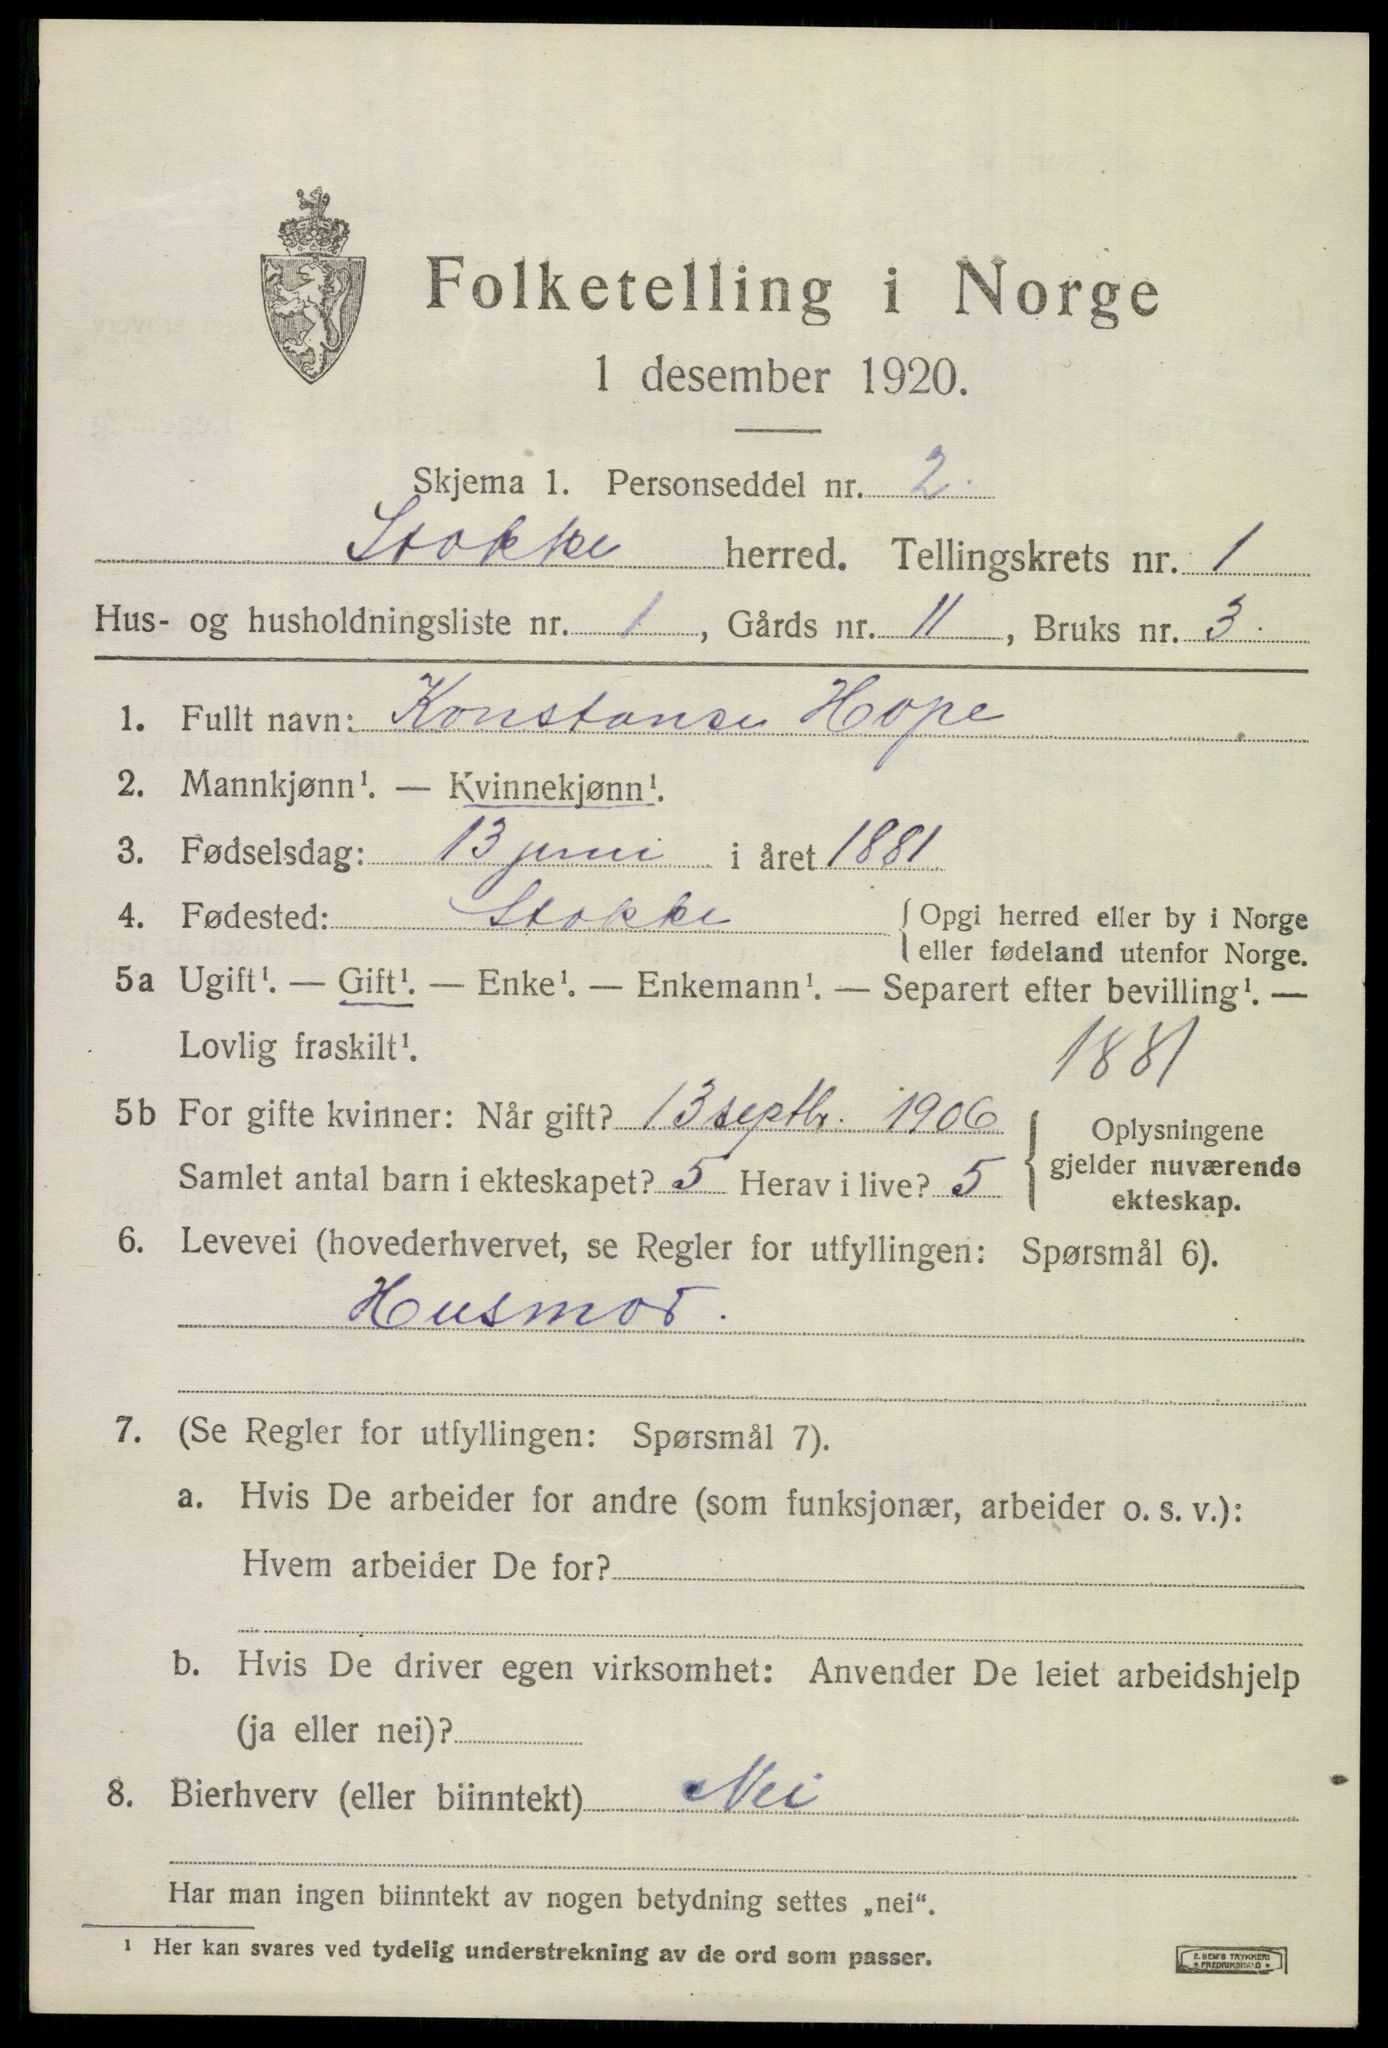 Folketelling i Norge
1 desember 1920.
Skjema 1. Personseddel nr. 2.
Stokke herred. Tellingskrets nr. 1
Hus- og husholdningsliste nr. 1, Gårds nr. 11, Bruks nr. 3.
1. Fullt navn: Konstanse Hope
2. Mannkjønn¹. — Kvinnekjønn¹.
3. Fødselsdag: 13 juni i året 1881
4. Fødested: Stokke {Opgi herred eller by i Norge
eller fødeland utenfor Norge.
5a Ugift¹. — Gift¹. — Enke¹. — Enkemann¹. — Separert efter bevilling¹. —
Lovlig fraskilt¹. 1881
5b For gifte kvinner: Når gift? 13 septbr. 1906
Samlet antal barn i ekteskapet? 5 Herav i live? 5
{Oplysningene
gjelder nuværende
ekteskap.
6. Levevei (hovederhvervet, se Regler for utfyllingen: Spørsmål 6).
Husmor.
7. (Se Regler for utfyllingen: Spørsmål 7).
a. Hvis De arbeider for andre (som funksjonær, arbeider o. s. v.):
Hvem arbeider De for?
b. Hvis De driver egen virksomhet: Anvender De leiet arbeidshjelp
(ja eller nei)?
8. Bierhverv (eller biinntekt) Nei
Har man ingen biinntekt av nogen betydning settes „nei“.
¹ Her kan svares ved tydelig understrekning av de ord som passer.
E. SEM'S TRYKKERI
• FREDRIKSHALD •